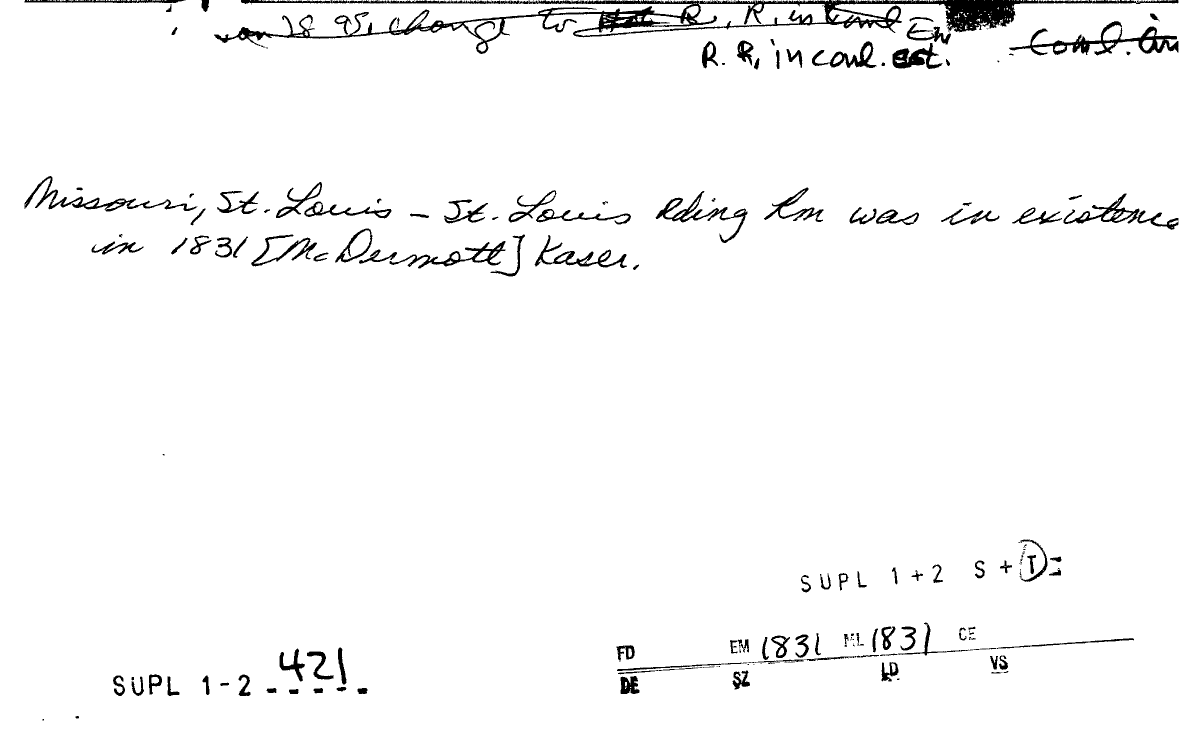 change to R. R. in
R. R. in coml. est.
Missouri, St. Louis – St. Louis Rding Rm was in existence
in 1831 [McDermott] Kaser.
SUPL 1+2 S+T
FD EM 1831 ML 1831 CE
DE SZ LD VS
SUPL 1-2 421